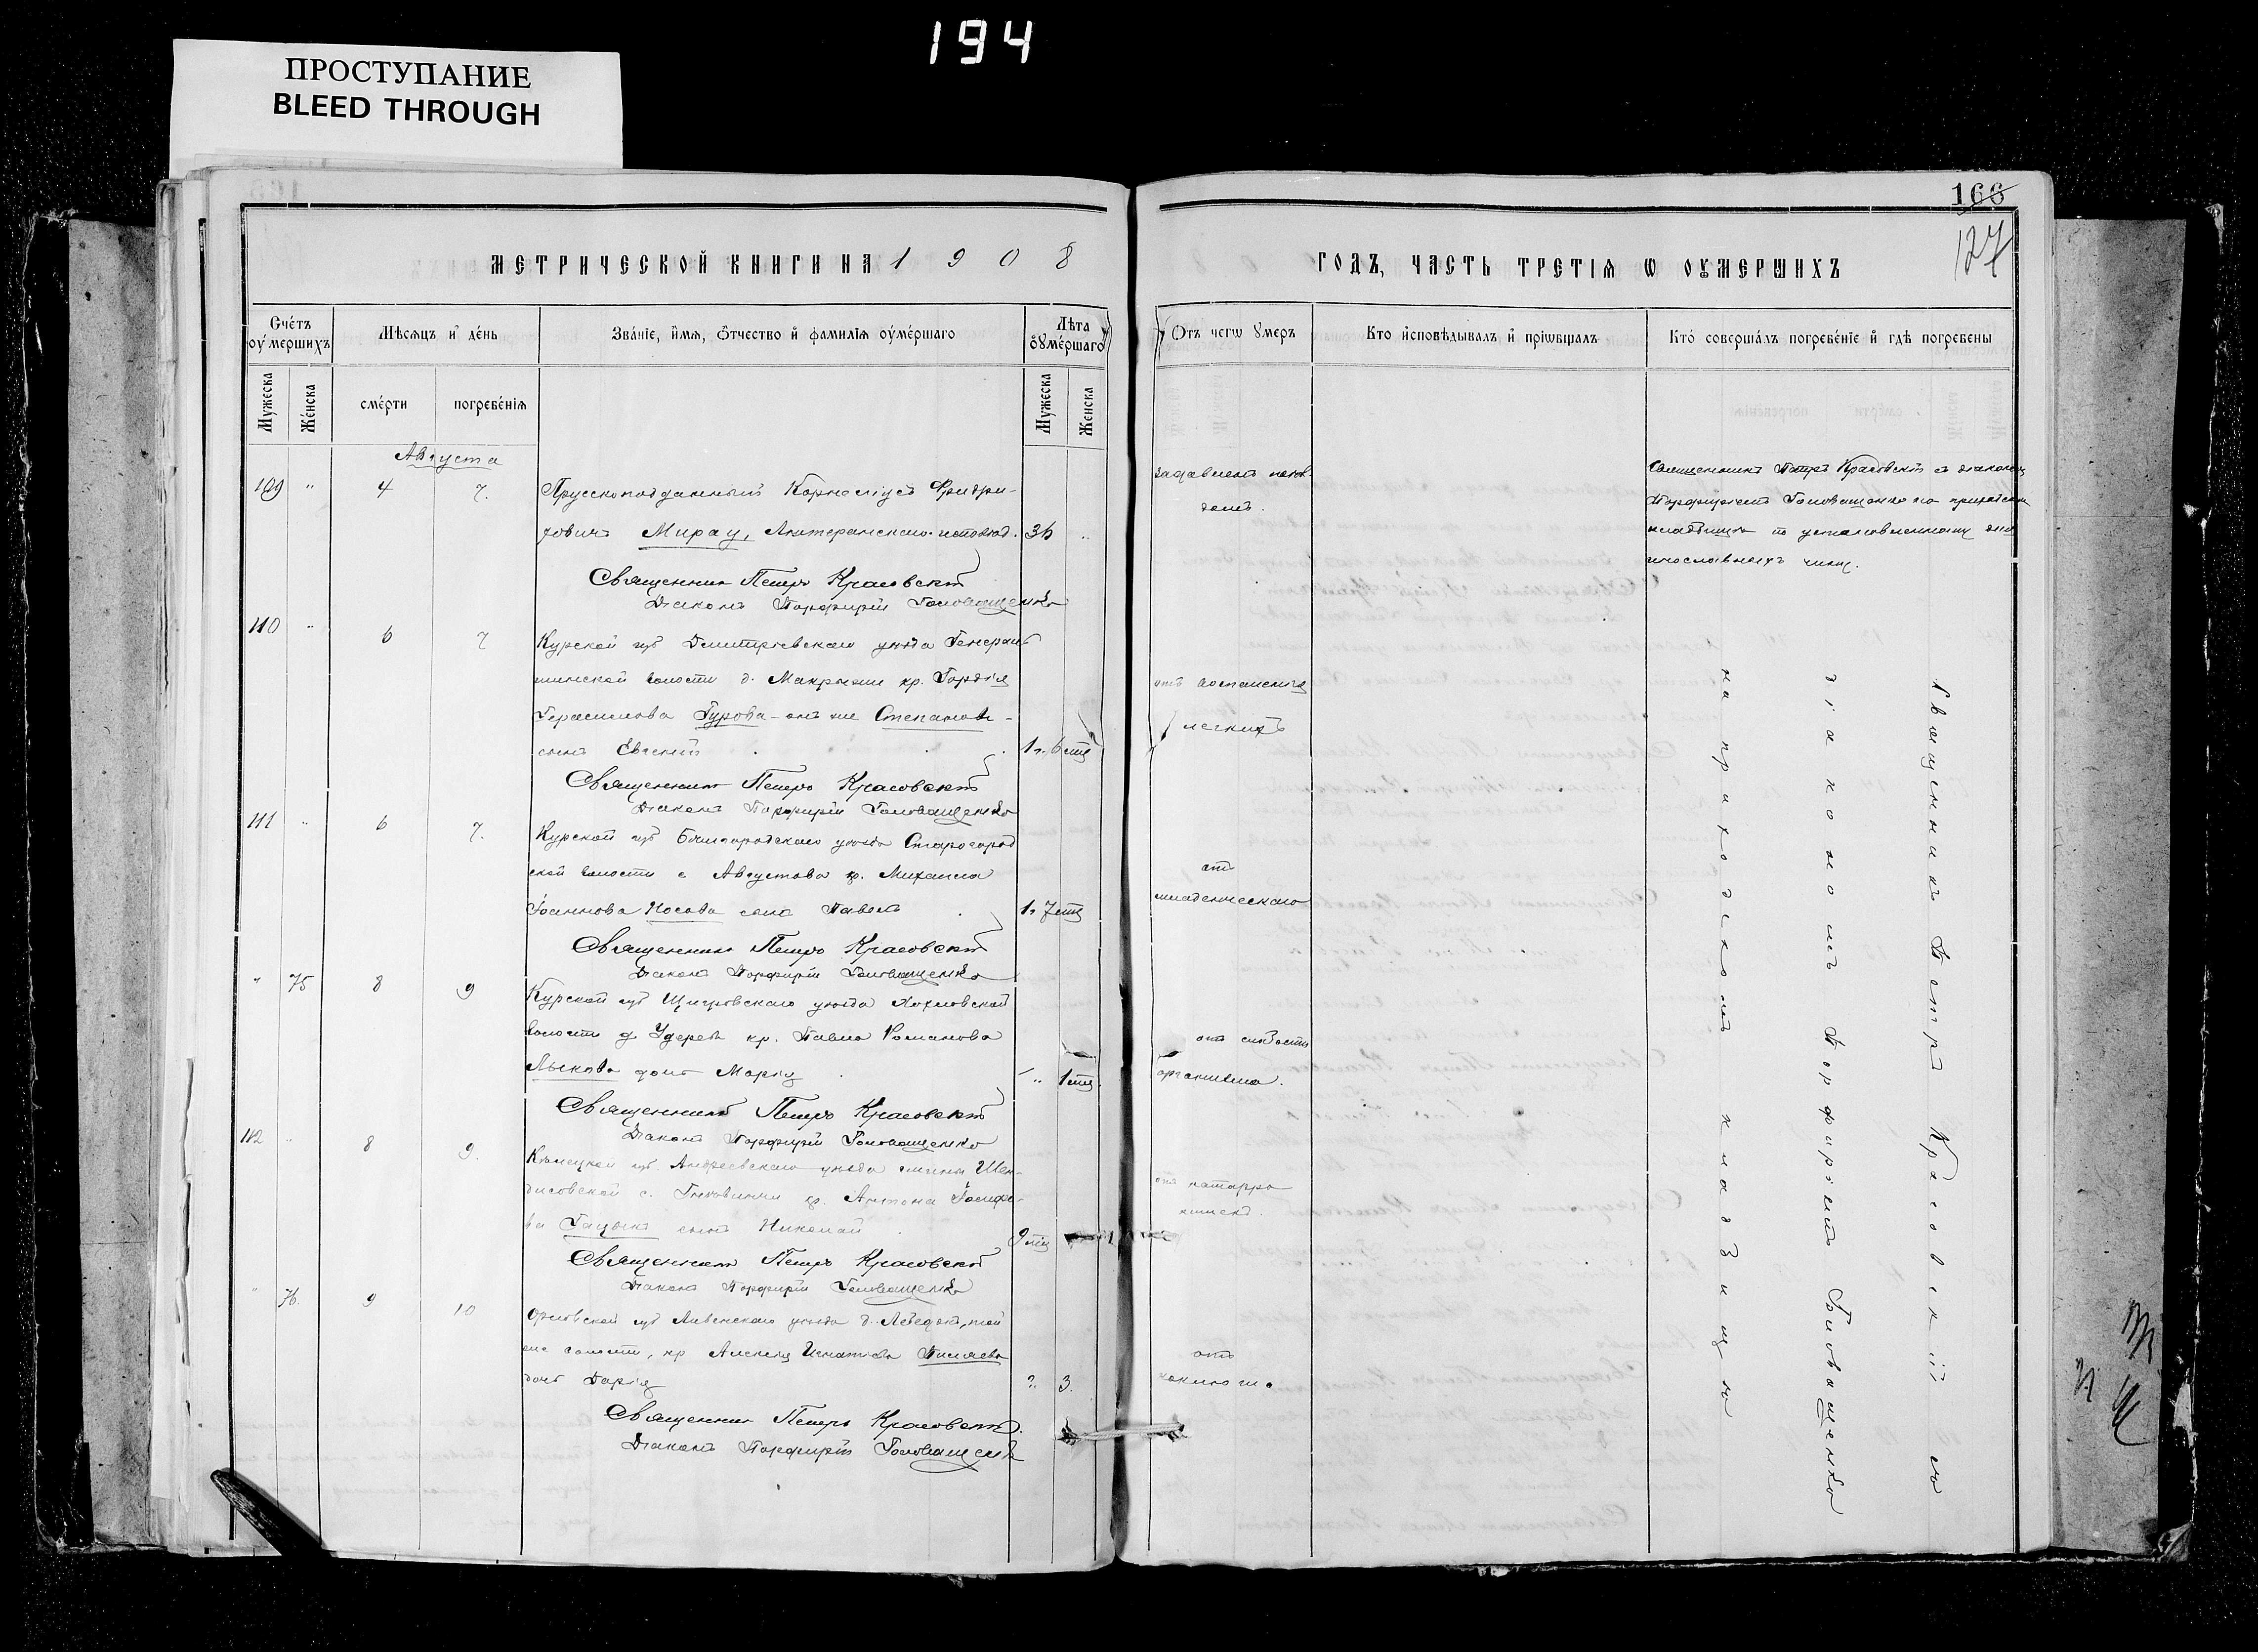 194
ПРОСТУПАНИЕ
BLEED THROUGH
166
127
МЕТРИЧЕСКОЙ КНИГИ НА 1908
ГОДЪ, ЧАСТЬ ТРЕТІѦ Ѡ ОУМЕРШИХЪ
Счетъ оумершихъ
Мѣсѧцъ и день
Званіе, имѧ, ѿчество и фамиліѧ оумершаго
Лѣта оумершаго
Отъ чегѡ умеръ
Кто исповѣдывалъ и пріѡбщалъ
Кто совершалъ погребеніе и гдѣ погребены
Мужеска
Женска
смерти
погребеніѧ
Мужеска
Женска
Августа
109 " 4 7.
Прусскоподданный Корнеліусъ Фридри-
ховичъ Мирау, Лютеранскаго исповѣд. 36 "
задавленъ поѣз-
домъ.
Священникъ Петръ Красовскій съ діакономъ
Порфиріемъ Головащенко на приходскомъ
кладбищѣ по установленному для
инославныхъ чину.
Священникъ Петръ Красовскій
Діаконъ Порфирій Головащенко
110 " 6 7
Курской губ Дмитріевскаго уѣзда
волости д. кр. Гордѣя
Герасимова Гурова-онъ же Степановъ-
сынъ Евгеній 1 г. 6 мц
отъ воспаленія
легкихъ
Священникъ Петръ Красовскій
Діаконъ Порфирій Головащенко
111 " 6 7.
Курской губ Бѣлгородскаго уѣзда Старогород
ской волости с Августова кр. Михаила
Іоаннова Носова сынъ Павелъ 1 г 7 мц
отъ
младенческаго
Священникъ Петръ Красовскій
Діаконъ Порфирій Головащенко
" 75 8 9
Курской губ Щигровскаго уѣзда Хохловской
волости д. Удерева кр. Павла Романова
Лыкова дочь Марія " 1 мц.
отъ слабости
организма.
Священникъ Петръ Красовскій
Діаконъ Порфирій Головащенко
112 " 8 9.
губ. Андреевскаго уѣзда гмины
с. кр. Антона Іосифо-
ва сынъ Николай 9 мц
отъ катарра
кишекъ.
Священникъ Петръ Красовскій
Діаконъ Порфирій Головащенко
" 76. 9 10
Орловской губ Ливенскаго уѣзда д. той
же волости, кр Алексѣя Игнатова
дочь Дарія 3.
отъ
коклюша
Священникъ Петръ Красовскій.
Діаконъ Порфирій Головащенко
Священникъ Петръ Красовскій съ
діакономъ Порфиріемъ Головащенко
на приходскомъ кладбищѣ